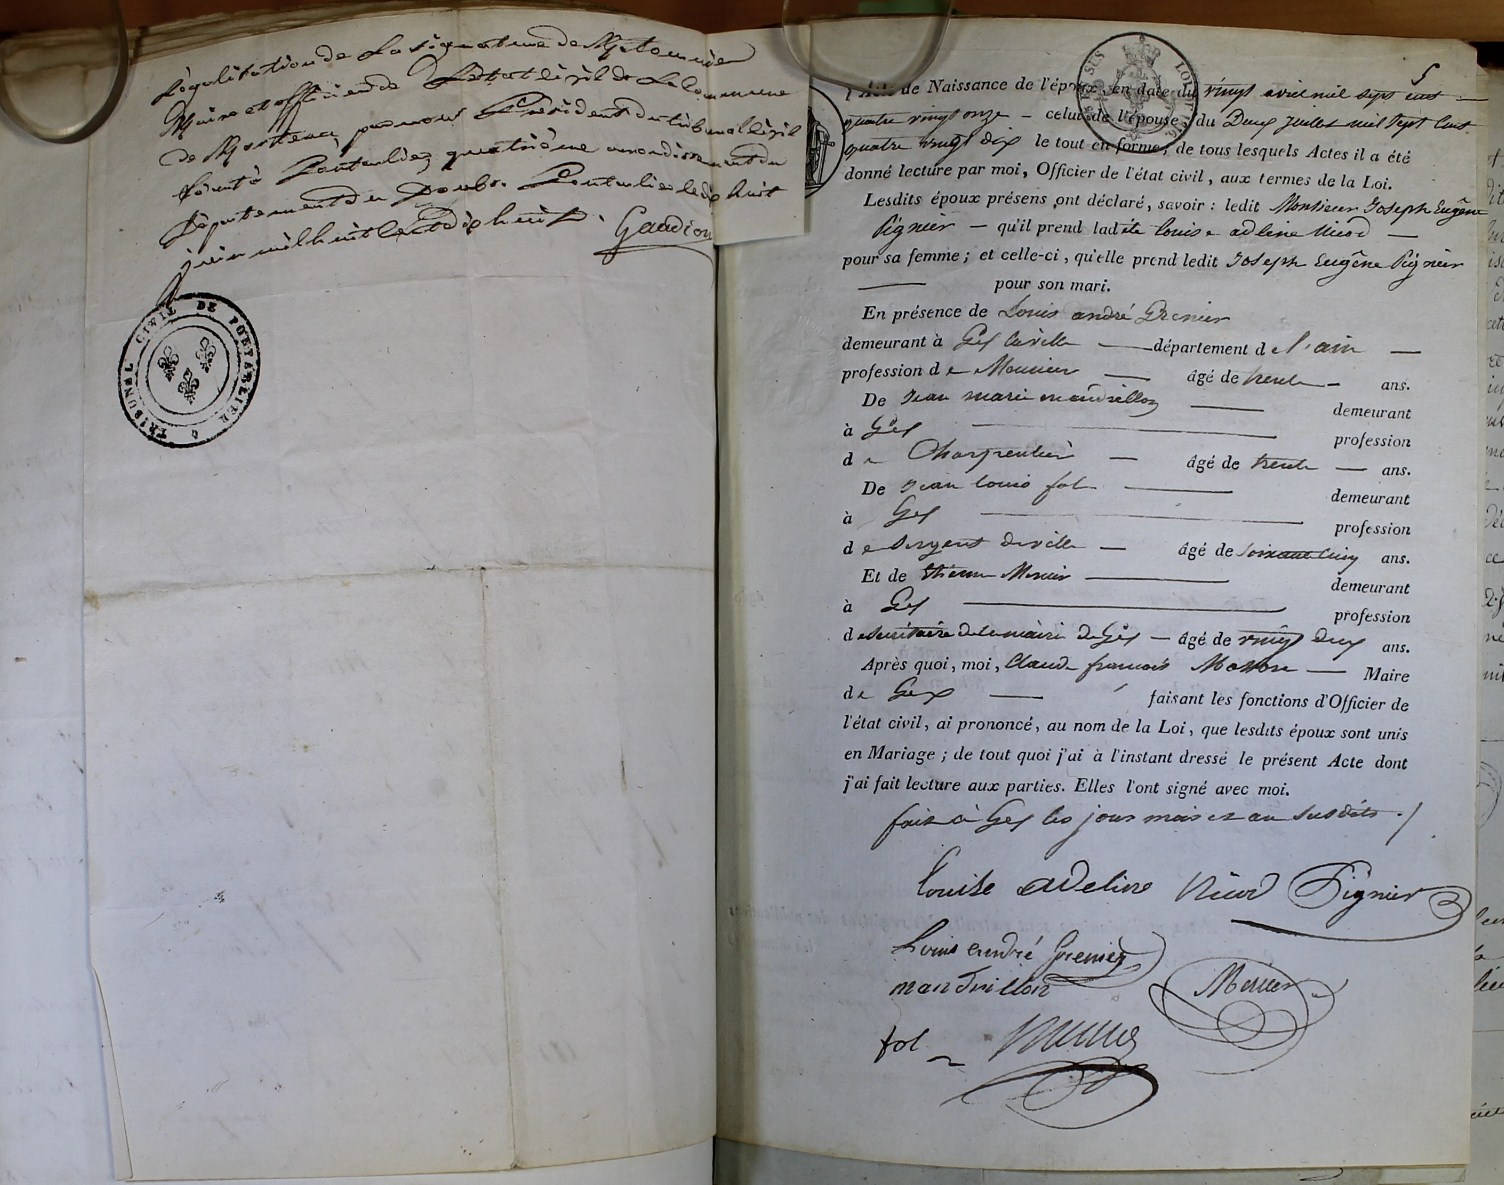 Légalisation de La signature de Mr
Maire et officier de L'état Civil de La Commune
de Morteau par nous Président du tribunal Civil
séant à Pontarlier, quatrième arrondissement du
Département du Doubs. Pontarlier le dix huit
juin mil huit cent dix huit.
TRIBUNAL CIVIL DE PONTARLIER
5
de Naissance de l'époux, en date du vingt avril mil sept cent
quatre vingt onze — celui de l'épouse, du Deux juillet mil sept cent
quatre vingt dix le tout en forme; de tous lesquels Actes il a été
donné lecture par moi, Officier de l'état civil, aux termes de la Loi.
Lesdits époux présens ont déclaré, savoir : ledit Monsieur Joseph Eugêne
Pignier — qu'il prend ladite Louise adeline Nicod —
pour sa femme; et celle-ci, qu'elle prend ledit Joseph Eugêne Pignier
— pour son mari.
En présence de Louis andré Grenier
demeurant à Gex la ville — département de l'ain —
profession de Meunier — âgé de trente — ans.
De Jean marie mandrillon — demeurant
à Gex — profession
de Charpentier — âgé de trente — ans.
De Jean Louis fol — demeurant
à Gex — profession
de Sergent de ville — âgé de soixante cinq ans.
Et de Etienne Mercier — demeurant
à Gex — profession
de Secrétaire de la mairie de Gex — âgé de vingt deux ans.
Après quoi, moi, Claude françois — Maire
de Gex — faisant les fonctions d'Officier de
l'état civil, ai prononcé, au nom de la Loi, que lesdits époux sont unis
en Mariage; de tout quoi j'ai à l'instant dressé le présent Acte dont
j'ai fait lecture aux parties. Elles l'ont signé avec moi.
fait à Gex les jour mois et an susdits ./
Louise adeline Nicod Pignier
Louis andré Grenier
mandrillon Mercier
fol